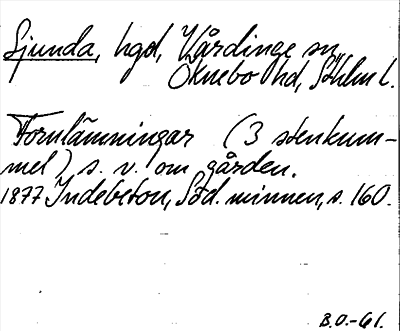 Sjunda, hgd, Vårdinge sn,
Öknebo hd, Sthlm l.
Fornlämningar (3 stenkum-
mel) s. v. om gården.
1877 Indebetou, Söd. minnen, s. 160.
B.O.-61.